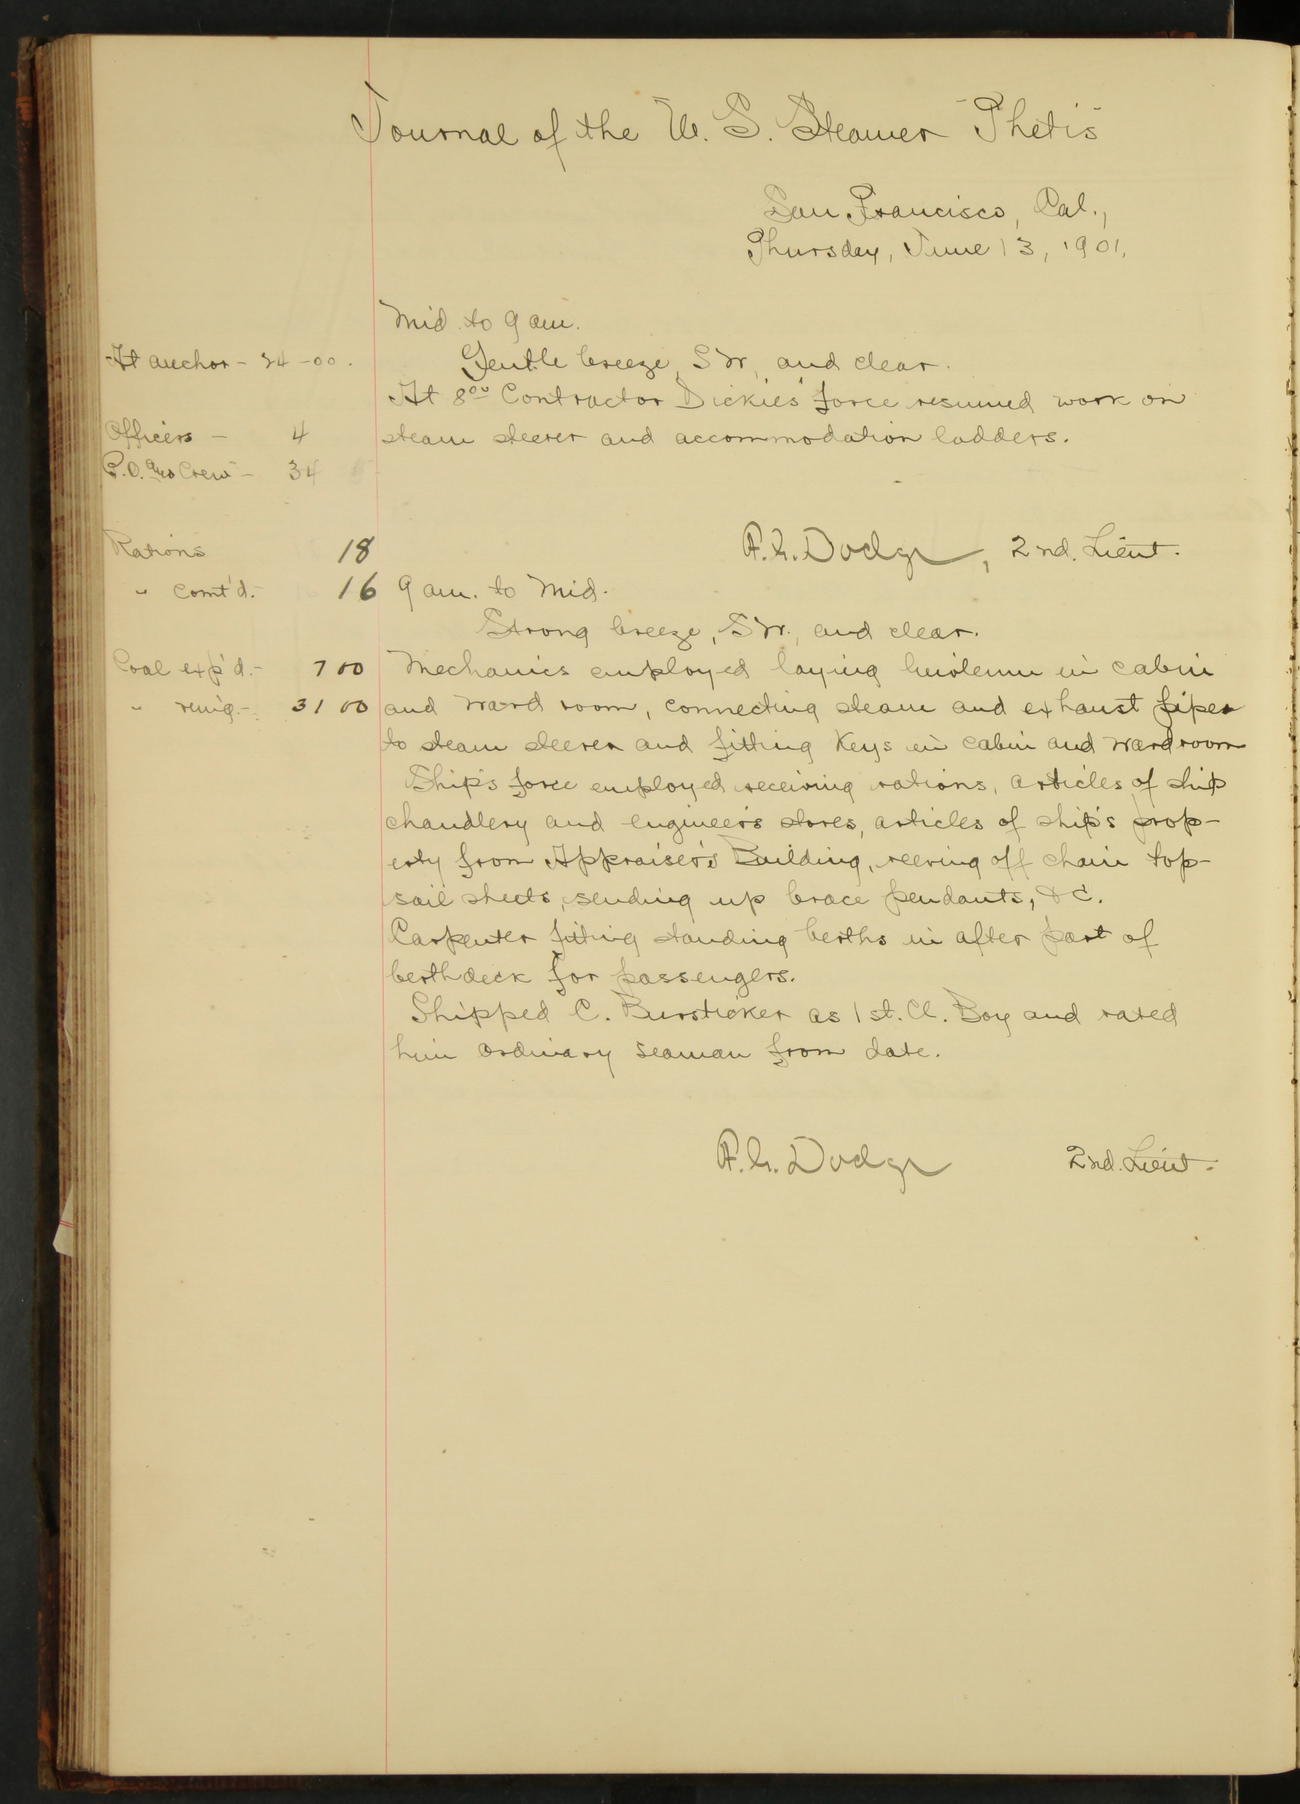 Journal of the U. S. Steamer "Thetis"
San Francisco, Cal.,
Thursday, June 13, 1901.
Mid. to 9 am.
At anchor - 24 - 00.
Gentle breeze, SW, and clear.
At 8 00 Contractor Dickie's force resumed work on
Officers - 4
steam steerer and accommodation ladders.
P.O. and Crew - 34
F.G. Dodge, 2nd. Lieut.
Rations 18
" comt'd. - 16
9 am. to Mid.
Strong breeze, SW., and clear.
Coal exp'd. - 700
Mechanics employed laying linoleum in cabin
" rem'g. - 3100
and ward room, connecting steam and exhaust pipes
to steam steerer and fitting keys in cabin and wardroom
Ship's force employed receiving rations, articles of ship
chandlery and engineer's stores, articles of ship's prop-
erty from Appraiser's Building, reeving off chain top-
sail sheets, sending up brace pendants, &c.
Carpenter fitting standing berths in after part of
berthdeck for passengers.
Shipped C. Bursticker as 1st. Cl. Boy and rated
him ordinary seaman from date.
F.G. Dodge 2nd. Lieut.